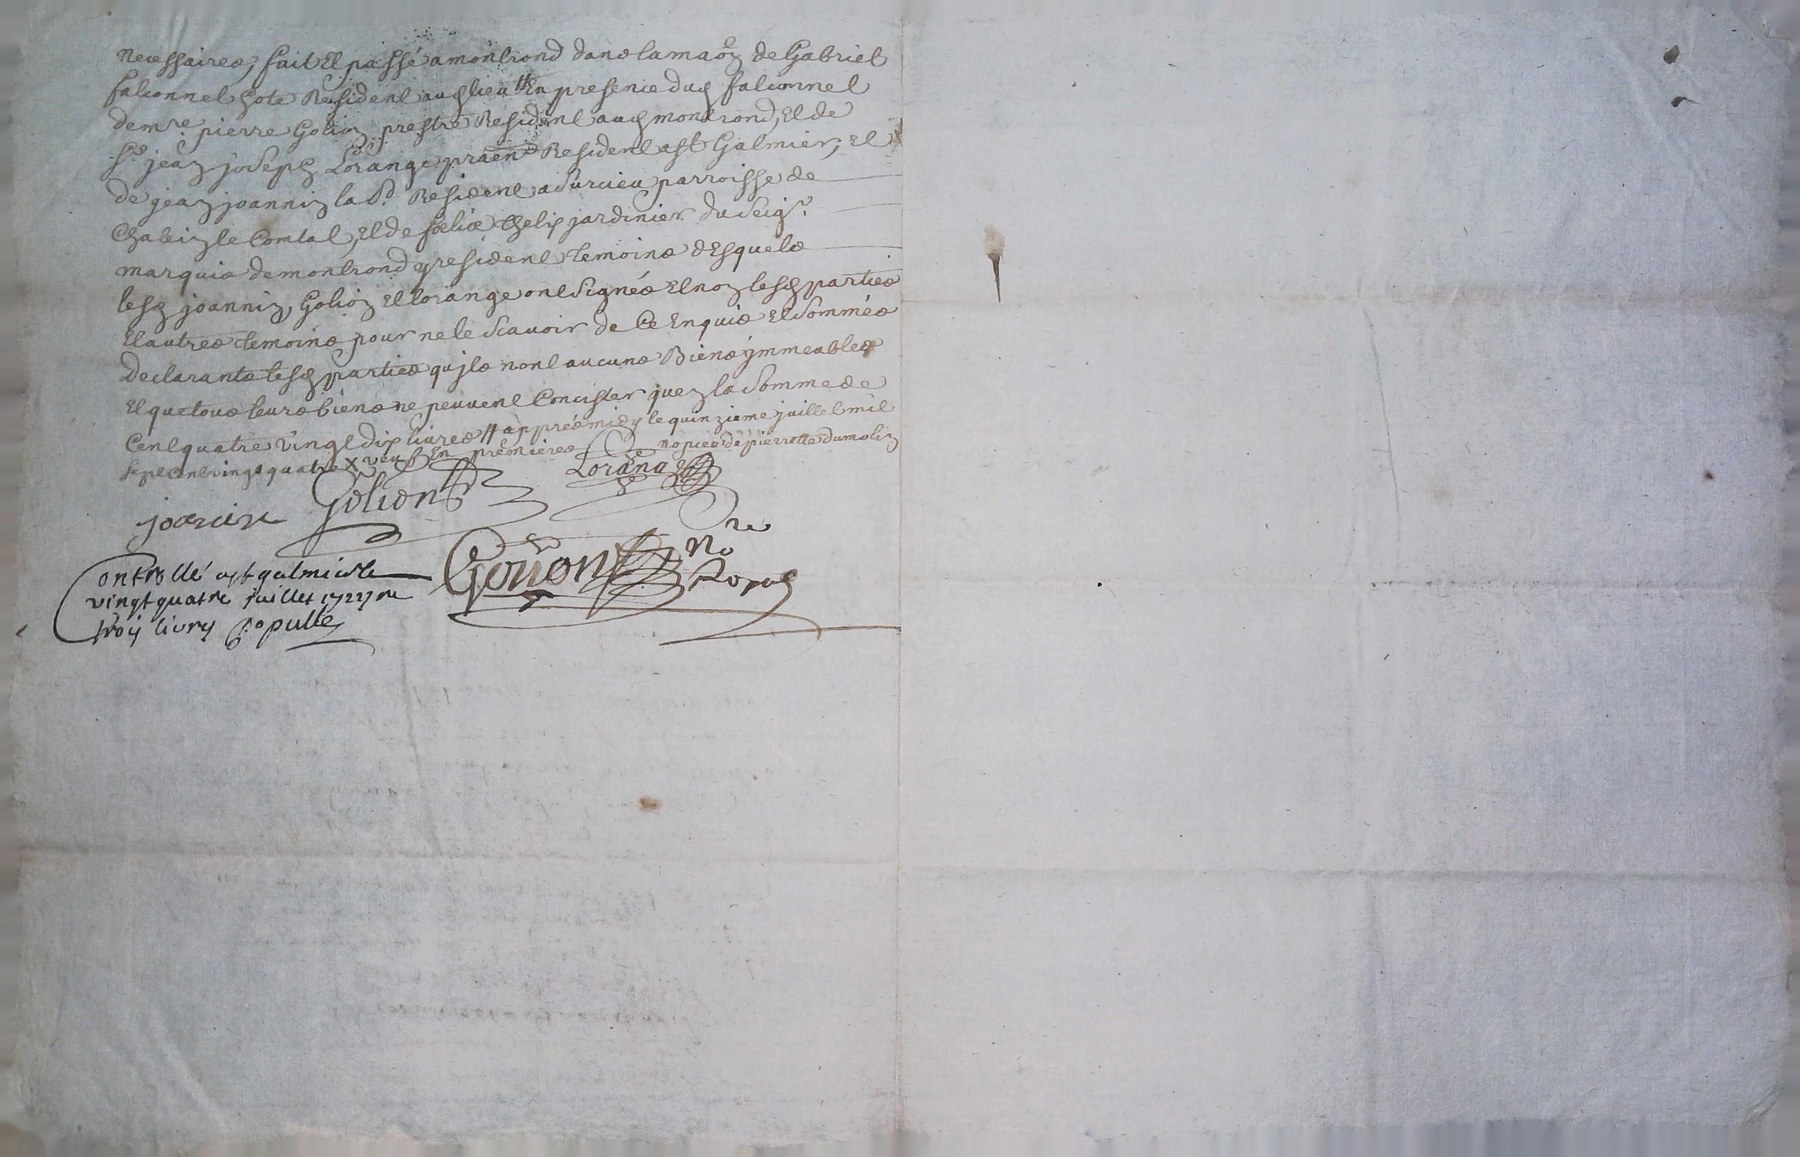 necessaires, fait et passé a montrond dans la maon de Gabriel
falconnel hote Resident audit lieu En presence dud falconnel
de mre pierre Gohon prestre Resident aud montrond, et de
sr jean joseph Lorange praen Resident a st Galmier, et
de jean joannin Resident a Surcieu parroisse de
Chalein le Comtal, et de foelix jardinier du seigr
marquis de montrond y resident temoins desquels
lesd joannin, Gohon et Lorange ont signés et non lesd parties
et autres temoins pour ne le scavoir de ce Enquis et sommés
declarants lesd parties qu'jls n'ont aucuns Biens ymmeables
et que tous leurs biens ne peuvent Concister qu'en la somme de
Cent quatre vingt dix livres // appres midy le quinzieme juillet mil
sept cent vingt quatre En premieres nopces de pierrette dumolin
joanin Gohon Lorange
Controllé a st galmier le
vingt quatre juillet 172
trois livres
no Royal